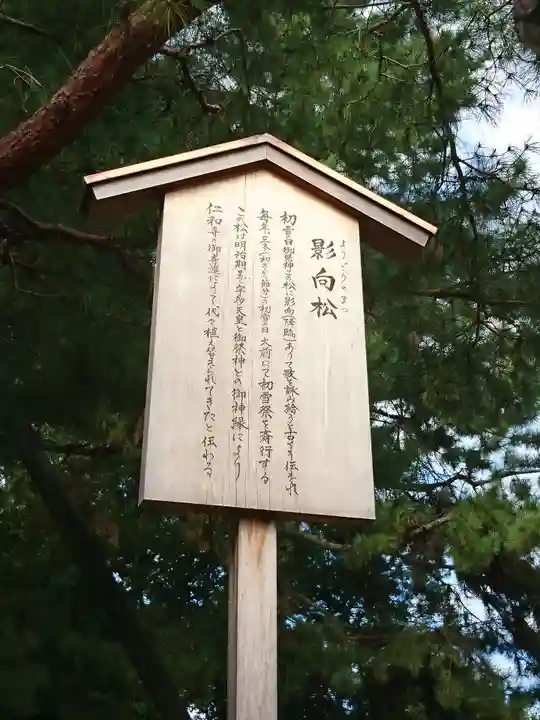 影向松
ようごうのまつ
初雪の日御祭神この松に影向(降臨)ありて歌を詠み給うと古より伝えられ
毎年、三冬(初冬から節分)の初雪の日 大前にて初雪祭を斎行する
この松は明治期まで宇多天皇と御祭神との御神縁により
仁和寺の御寄進によって代々植え替えられてきたと伝わる